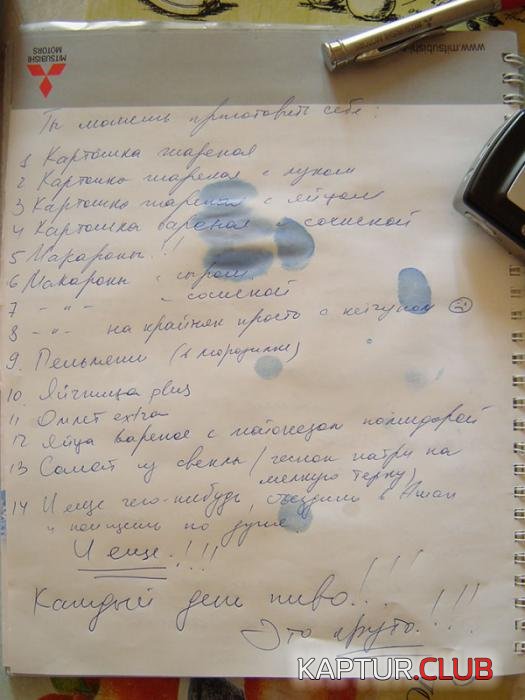 MITSUBISHI
MOTORS
www.mitsubishi
Ты можешь приготовить себе:
1 Картошка жареная
2 Картошка жареная с луком
3 Картошка жареная с яйцом
4 Картошка вареная с сосиской
5 Макароны!!!
6 Макароны с сыром
7 -"- с сосиской
8 -"- на крайняк просто с кетчупом
9. Пельмени (в морозилке)
10. Яичница plus
11 Омлет extra
12 Яйца вареное с майонезом помидорой
13 Салат из свеклы (чеснок натри на
мелкую терку)
14 И еще чего-нибудь, съездишь в Ашан
и поищешь по душе.
И еще!!!
Каждый день пиво!!!
Это круто!!!
KAPTUR.CLUB